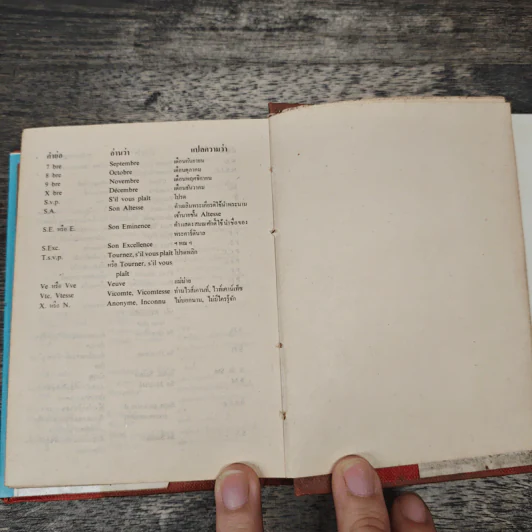 คำย่อ อ่านว่า แปลความว่า
7 bre Septembre เดือนกันยายน
8 bre Octobre เดือนตุลาคม
9 bre Novembre เดือนพฤศจิกายน
X bre Décembre เดือนธันวาคม
S.v.p. S'il vous plaît โปรด
S.A. Son Altesse คำเสริมพระเกียรติใช้นำพระนาม
เจ้านายชั้น Altesse
S.E. หรือ E. Son Eminence คำแสดงสมณศักดิ์ใช้นำชื่อของ
พระคาร์ดินาล
S.Exc. Son Excellence ฯพณฯ
T.s.v.p. Tournez, s'il vous plaît โปรดพลิก
หรือ Tourner, s'il vous
plaît
Ve หรือ Vve Veuve แม่ม่าย
Vte, Vtesse Vicomte, Vicomtesse ท่านไวส์เคานท์, ไวส์เคาน์เตส
X. หรือ N. Anonyme, Inconnu ไม่บอกนาม, ไม่มีใครรู้จัก